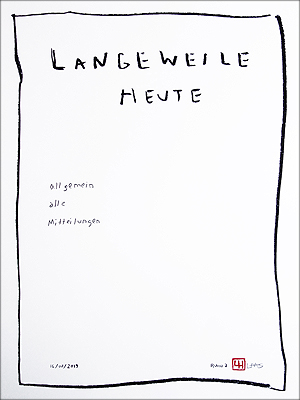 LANGEWEILE
HEUTE
allgemein
alle
Mitteilungen
Band 2